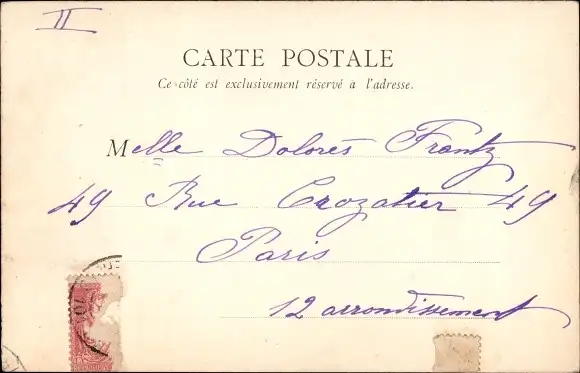 II
CARTE POSTALE
Ce côté est exclusivement réservé à l'adresse.
Melle Dolorès Frantz
49 Rue Crozatier 49
Paris
12 arrondissement